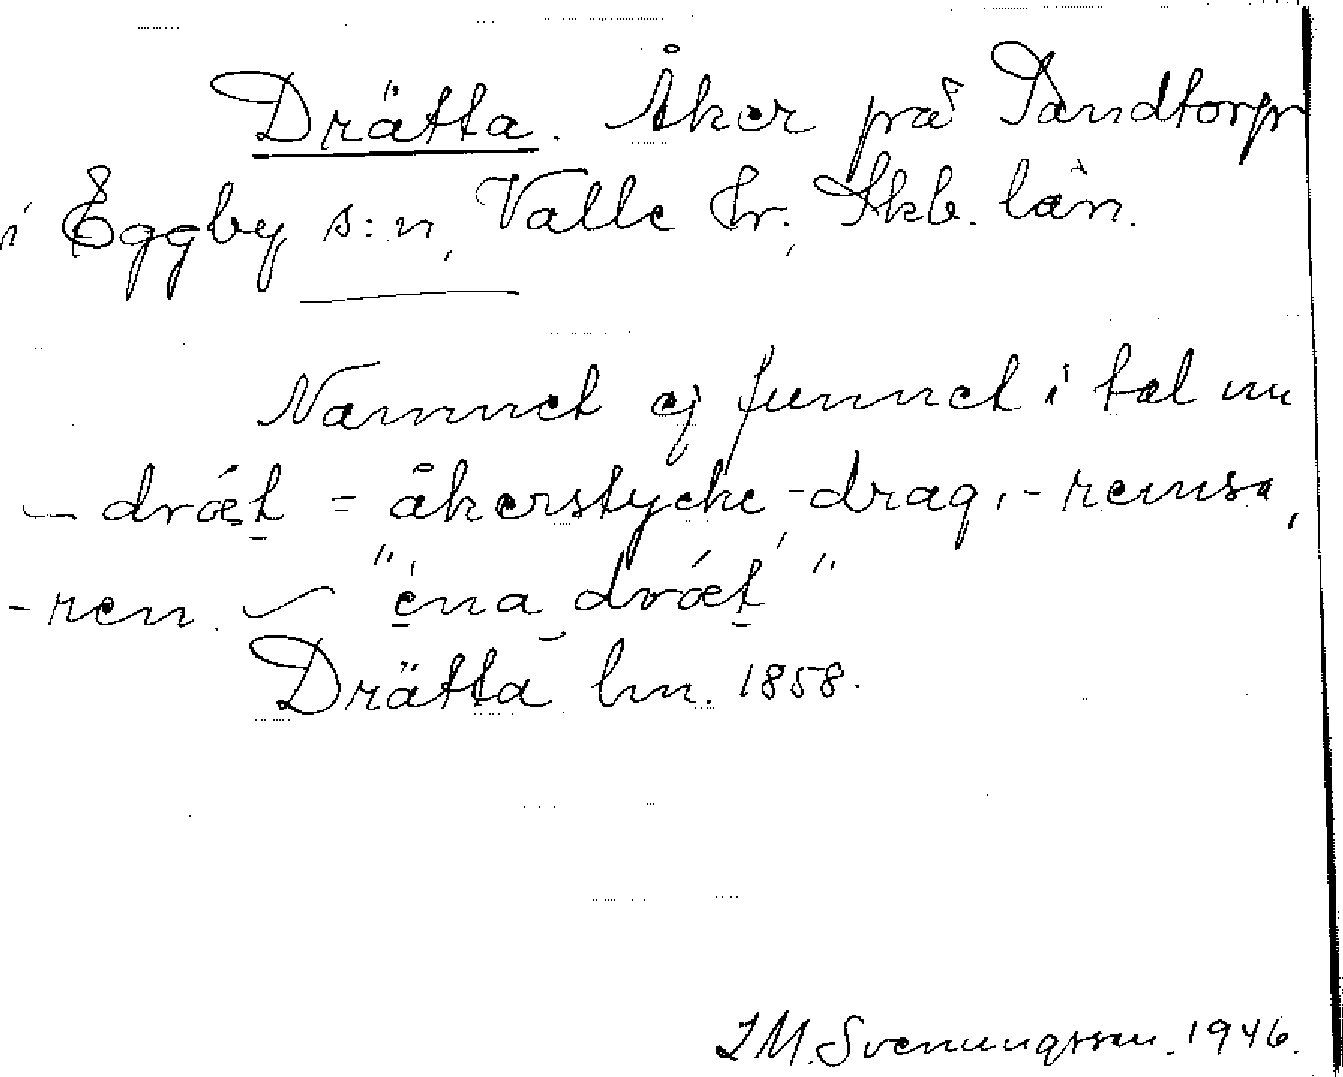 Drätta. Åker på Sandtorp
i Eggby s:n, Valle hr., Skb. län.
Namnet ej funnet i tal nu
– dræt = åkerstycke, -drag, -remsa,
-ren. "ena dræt"
Drätta lm. 1858.
I M. Svenungsson. 1946.